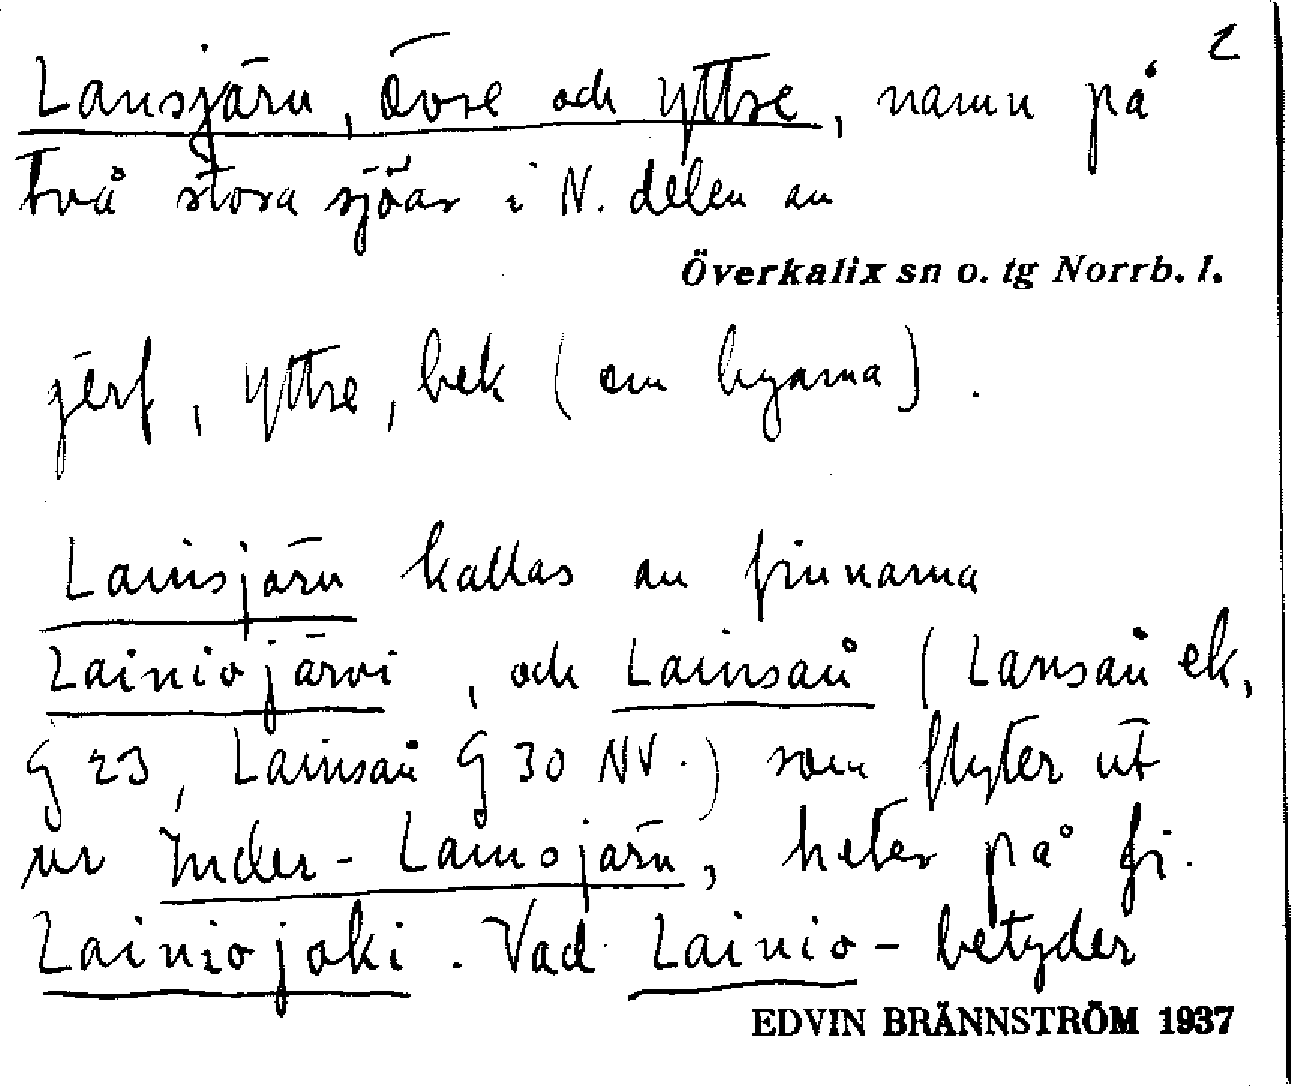 2
Lansjärv, övre och yttre, namn på
två stora sjöar i N. delen av
Överkalix sn o. tg Norrb. l.
jerf, yttre, bek (om byarna).
Lainsjärv kallas av finnarna
Lainiojärvi, och Lainsån (Lansån ek.
G 23, Lainsån G 30 NV.) som flyter ut
ur Inder-Lainojärv, heter på fi.
Lainiojoki. Vad Lainio- betyder
EDVIN BRÄNNSTRÖM 1937